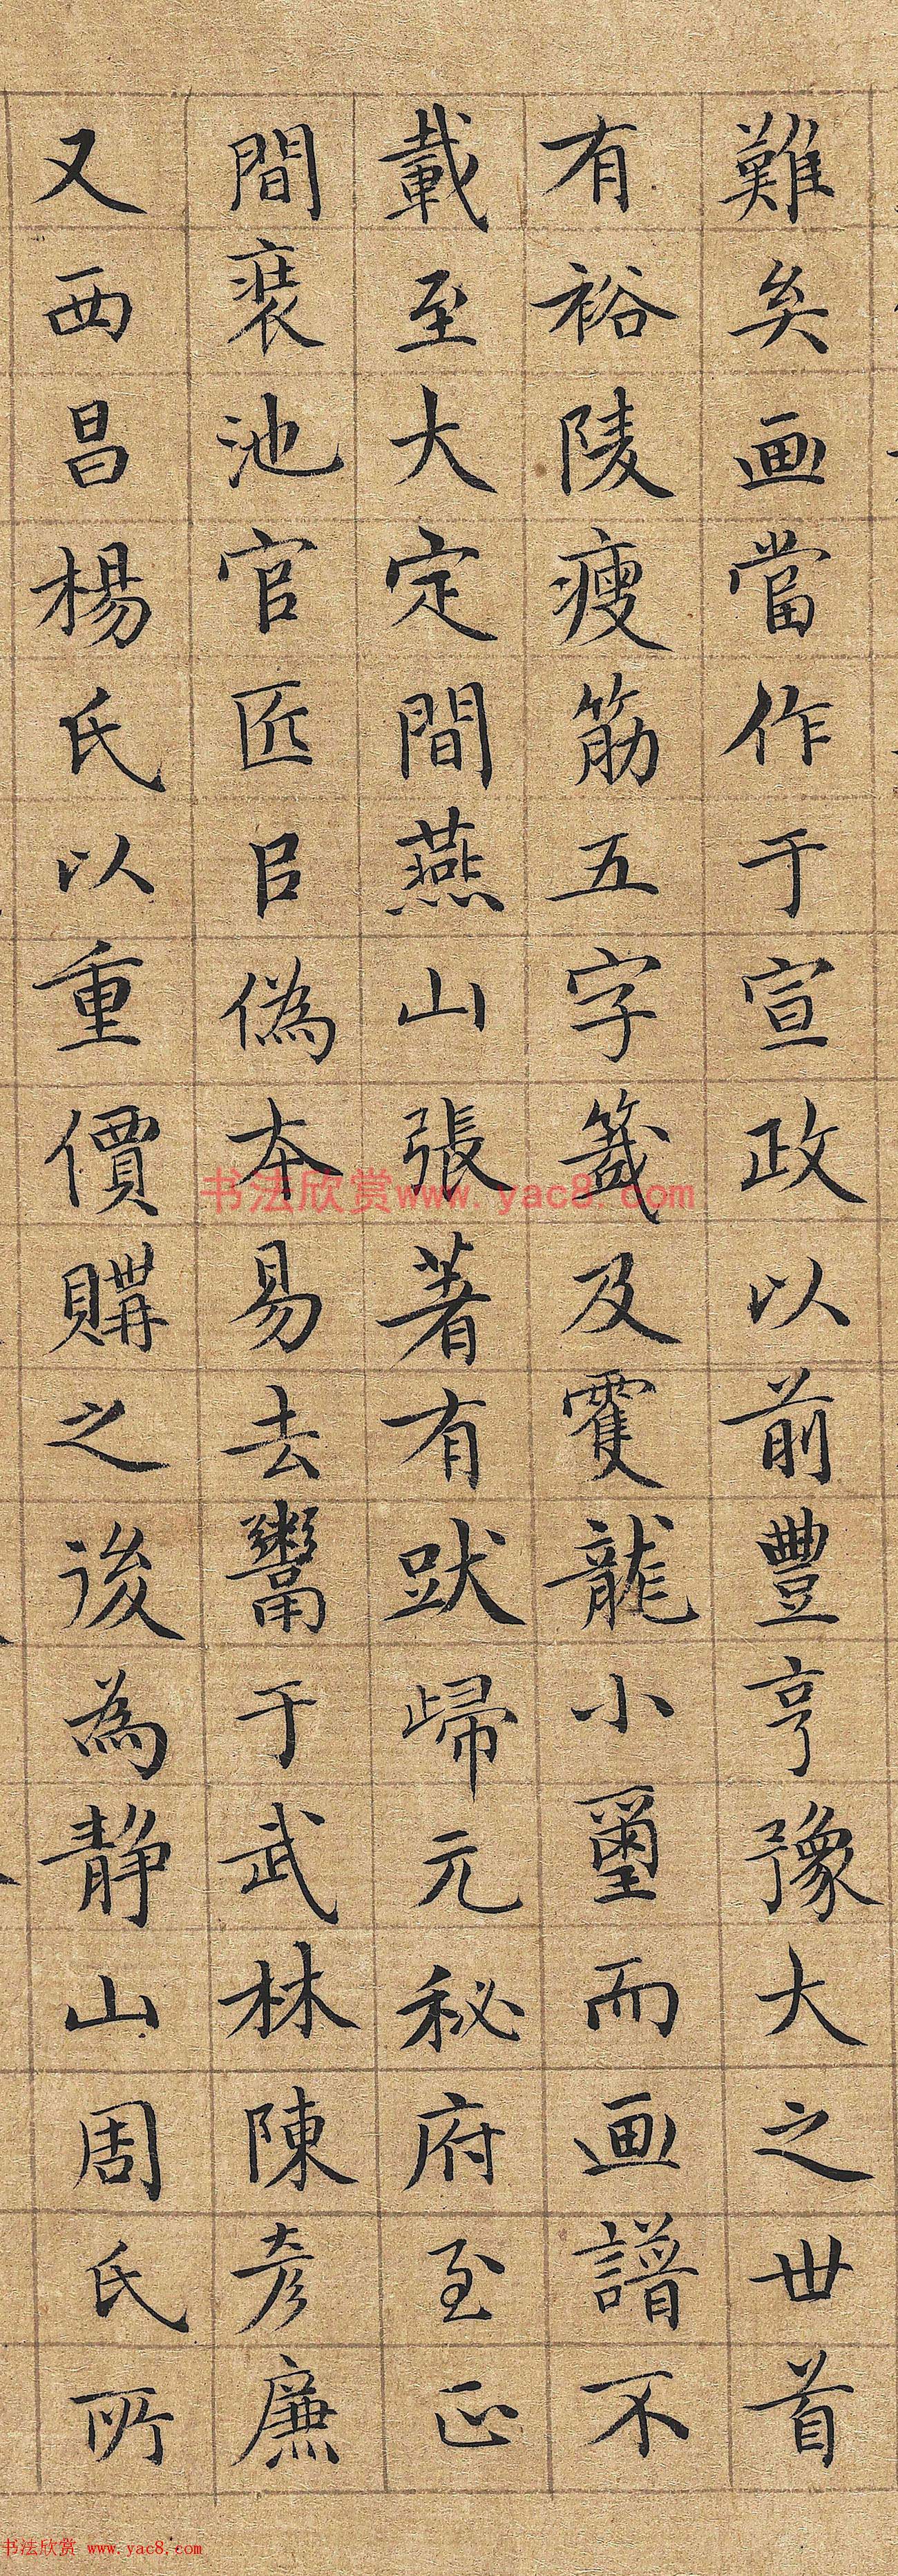 難矣画當作于宣政以前豐亨豫大之世首
有裕陵瘦筋五字籖及雙龍小璽而画譜不
載至大定間燕山張著有跋歸元秘府至正
間裴池官匠臣偽本易去鬻于武林陳彦廉
又西昌楊氏以重價購之後為静山周氏所
书法欣赏www.yac8.com
书法欣赏 www.yac8.com